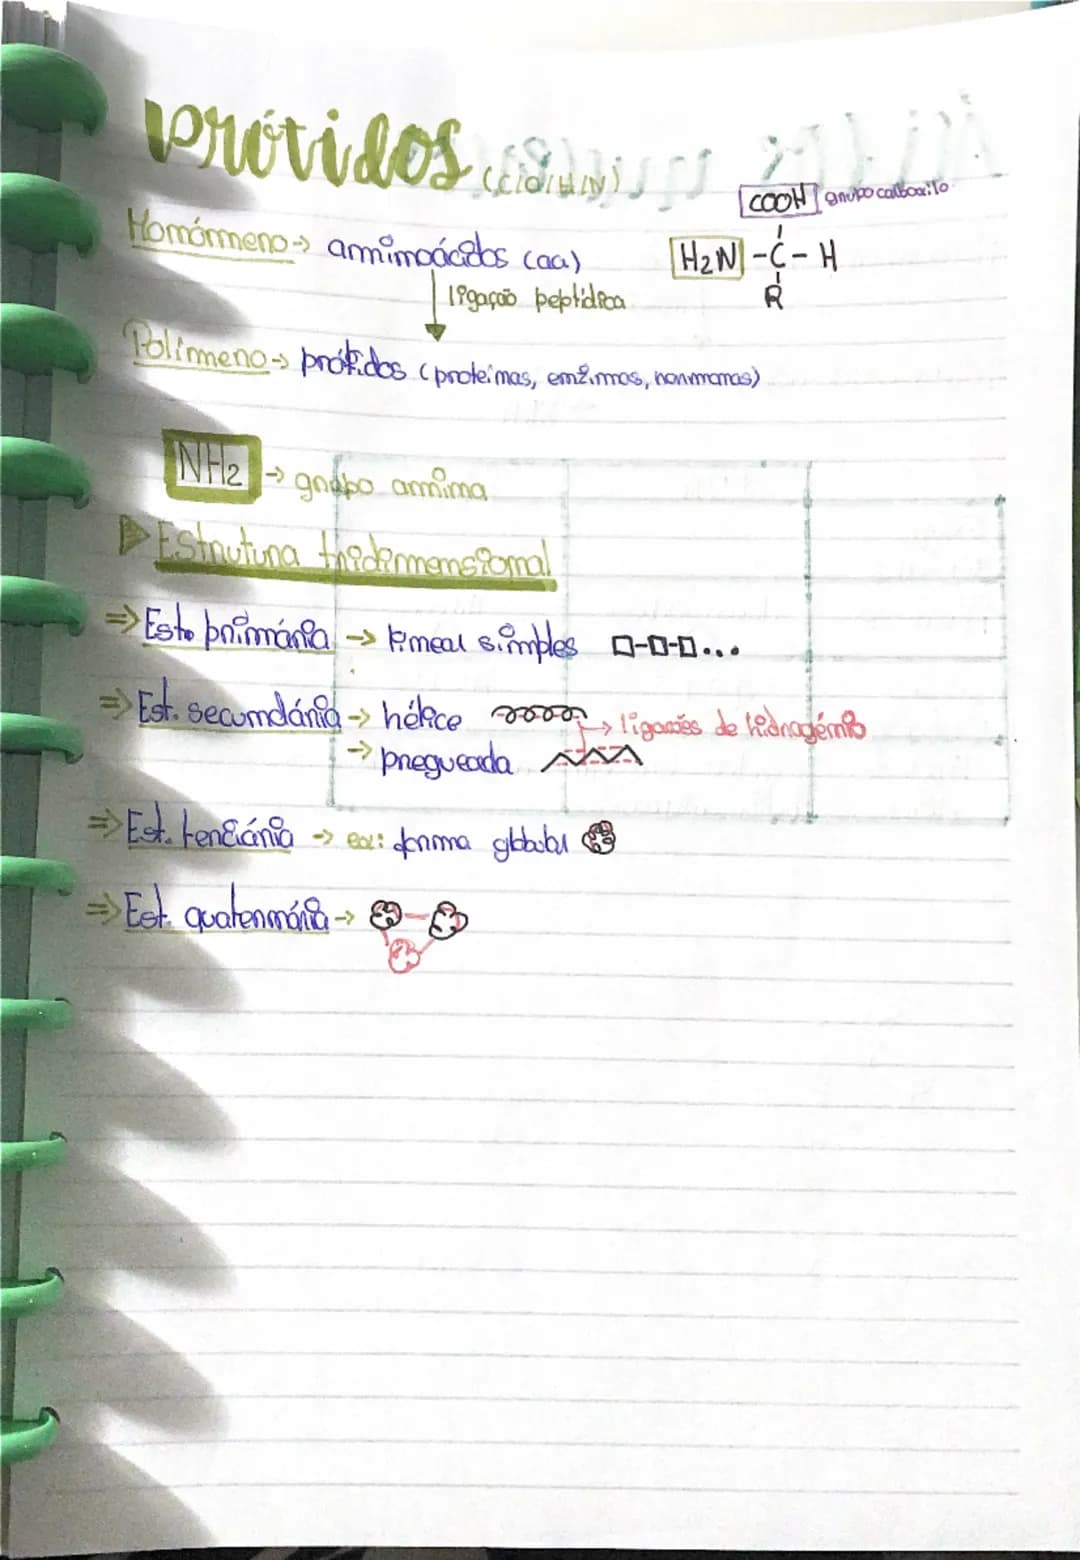 Prótidos (C,O,H,N)
COOH grupo carboxilo
Monómeno → aminoácidos (aa)
H2N - C - H
R
ligação peptídica
Polímeno → prótidos (proteínas, enzimas, hormonas)
NH2 → grupo amina
Estrutura tridimensional
⇒ Est. primária → linear simples □-□-□...
⇒ Est. secundária → hélice → ligações de hidrogénio
→ pregueada
⇒ Est. terciária → ex: forma globular
⇒ Est. quaternária →